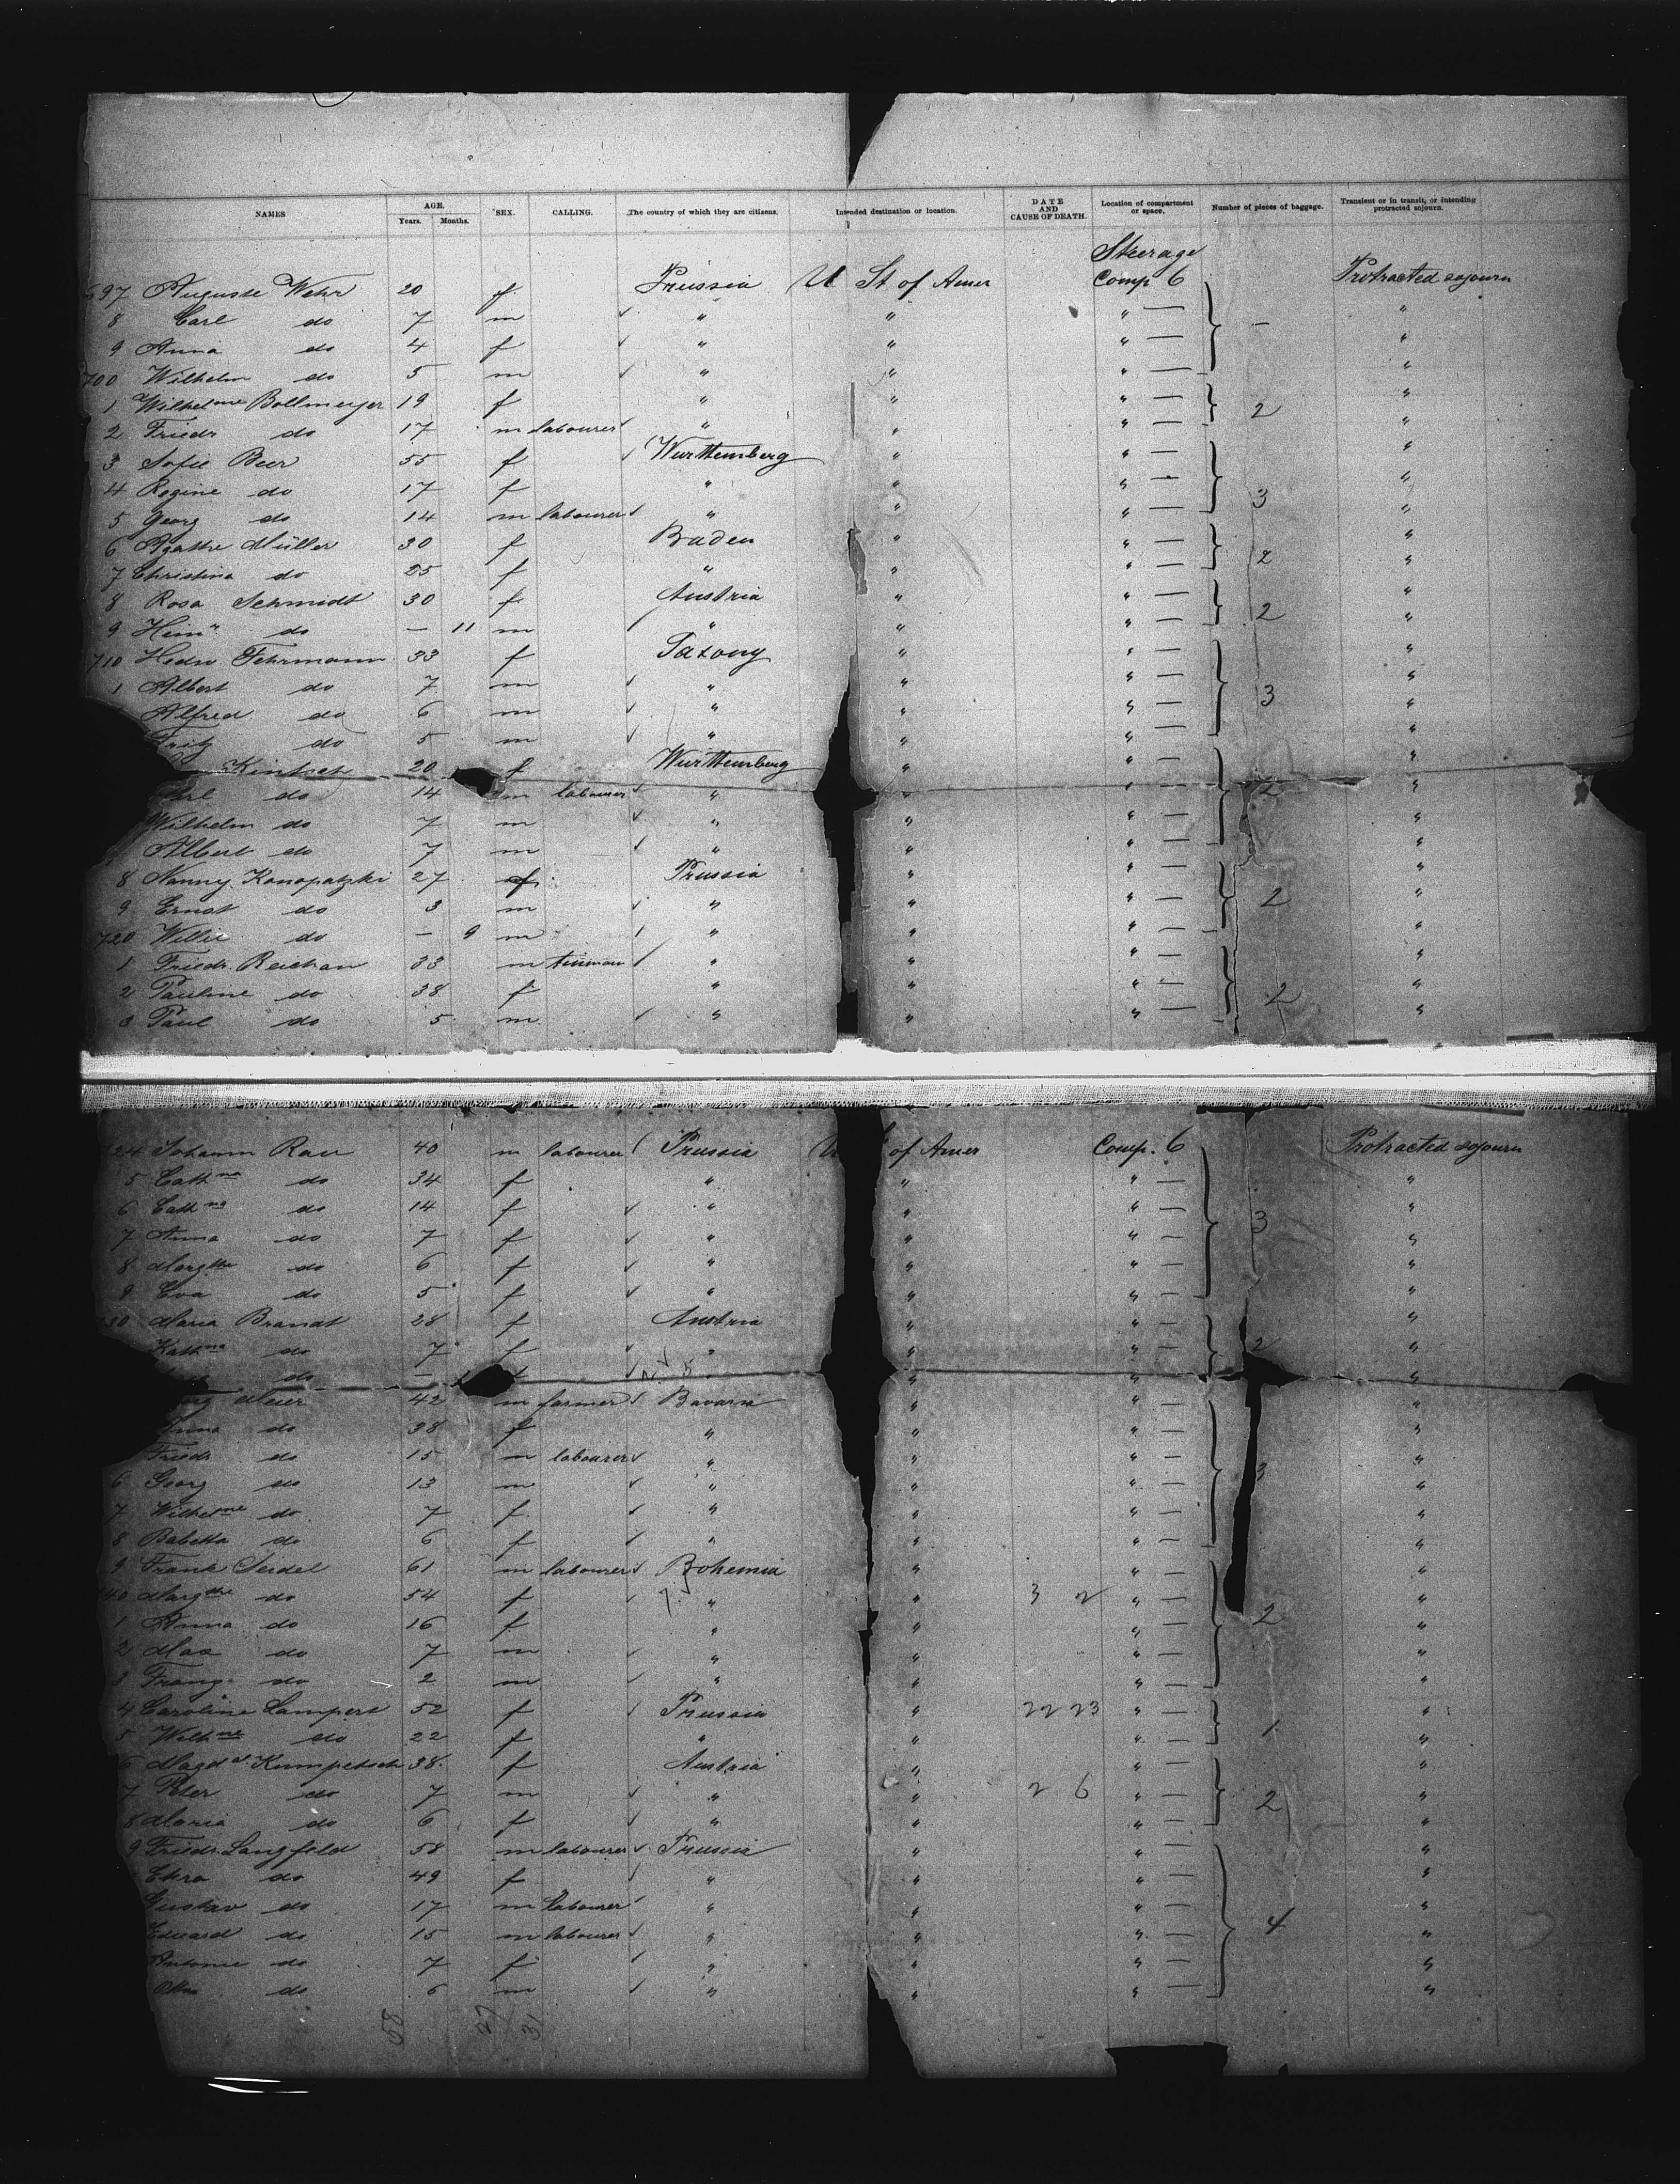 NAMES AGE. Years. Months. SEX. CALLING. The country of which they are citizens. Intended destination or location. DATE AND CAUSE OF DEATH. Location of compartment or space. Number of pieces of baggage. Transient or in transit, or intending protracted sojourn.
Steerage
697 Auguste Wehr 20 f Prussia U St of Amer Comp 6 Protracted sojourn
8 Carl do 7 m " " " — – "
9 Anna do 4 f " " " — "
700 Wilhelm do 5 m " " " — "
1 Wilhelme Bollmeyer 19 f " " " — 2 "
2 Friedr do 17 m labourer " " " — "
3 Sofie Beer 55 f Wurttemberg " " — "
4 Regine do 17 f " " " — 3 "
5 Georg do 14 m labourer " " " — "
6 Agathe Müller 30 f Baden " " — 2 "
7 Christina do 25 f " " " — "
8 Rosa Schmidt 30 f Austria " " — 2 "
9 Heinr do — 11 m " " " — "
710 Hedw. Fehrmann 33 f Saxony " " — "
1 Albert do 7 m " " " — 3 "
Alfred do 6 m " " " — "
Fritz do 5 m " " " — "
Kintsch 20 f Wurttemberg " " — "
Carl do 14 m labourer " " " — 2 "
Wilhelm do 7 m " " " — "
Albert do 7 m " " " — "
8 Nanny Konopatzki 27 f Prussia " " — "
9 Ernst do 3 m " " " — 2 "
720 Willie do — 9 m " " " — "
1 Friedr. Reichan 33 m tinman " " " — "
2 Pauline do 38 f " " " — 2 "
3 Paul do 5 m " " " — "
724 Johann Rau 40 m labourer Prussia U of Amer Comp. 6 Protracted sojourn
5 Cathna do 34 f " " " — "
6 Cathna do 14 f " " " — 3 "
7 Anna do 7 f " " " — "
8 Margthe do 6 f " " " — "
9 Eva do 5 f " " " — "
730 Maria Brandt 28 f Austria " " — "
Kathna do 7 f " " " — 2 "
do — " " "
Meier 42 m farmer Bavaria " " — "
Anna do 38 f " " " — "
Friedr do 15 m labourer " " " — 3 "
6 Georg do 13 m " " " — "
7 Wilhelme do 7 f " " " — "
8 Babetta do 6 f " " " — "
9 Frank Seidel 61 m labourer Bohemia " " — "
740 Margthe do 54 f " " 3 2 " — 2 "
1 Anna do 16 f " " " — "
2 Max do 7 m " " " — "
3 Franz do 2 m " " " — "
4 Caroline Lampert 52 f Prussia " 22 23 " — 1 "
5 Wilhme do 22 f " " " — "
6 Magda Kumpetsch 38 f Austria " " — "
7 Peter do 7 m " " 2 6 " — 2 "
8 Maria do 6 f " " " — "
9 Friedr. Langfeld 58 m labourer Prussia " " — "
do 49 f " " " — "
Gustav do 17 m labourer " " " — "
Eduard do 15 m labourer " " " — 4 "
Antonie do 7 f " " " — "
Otto do 6 m " " " — "
58 27 31